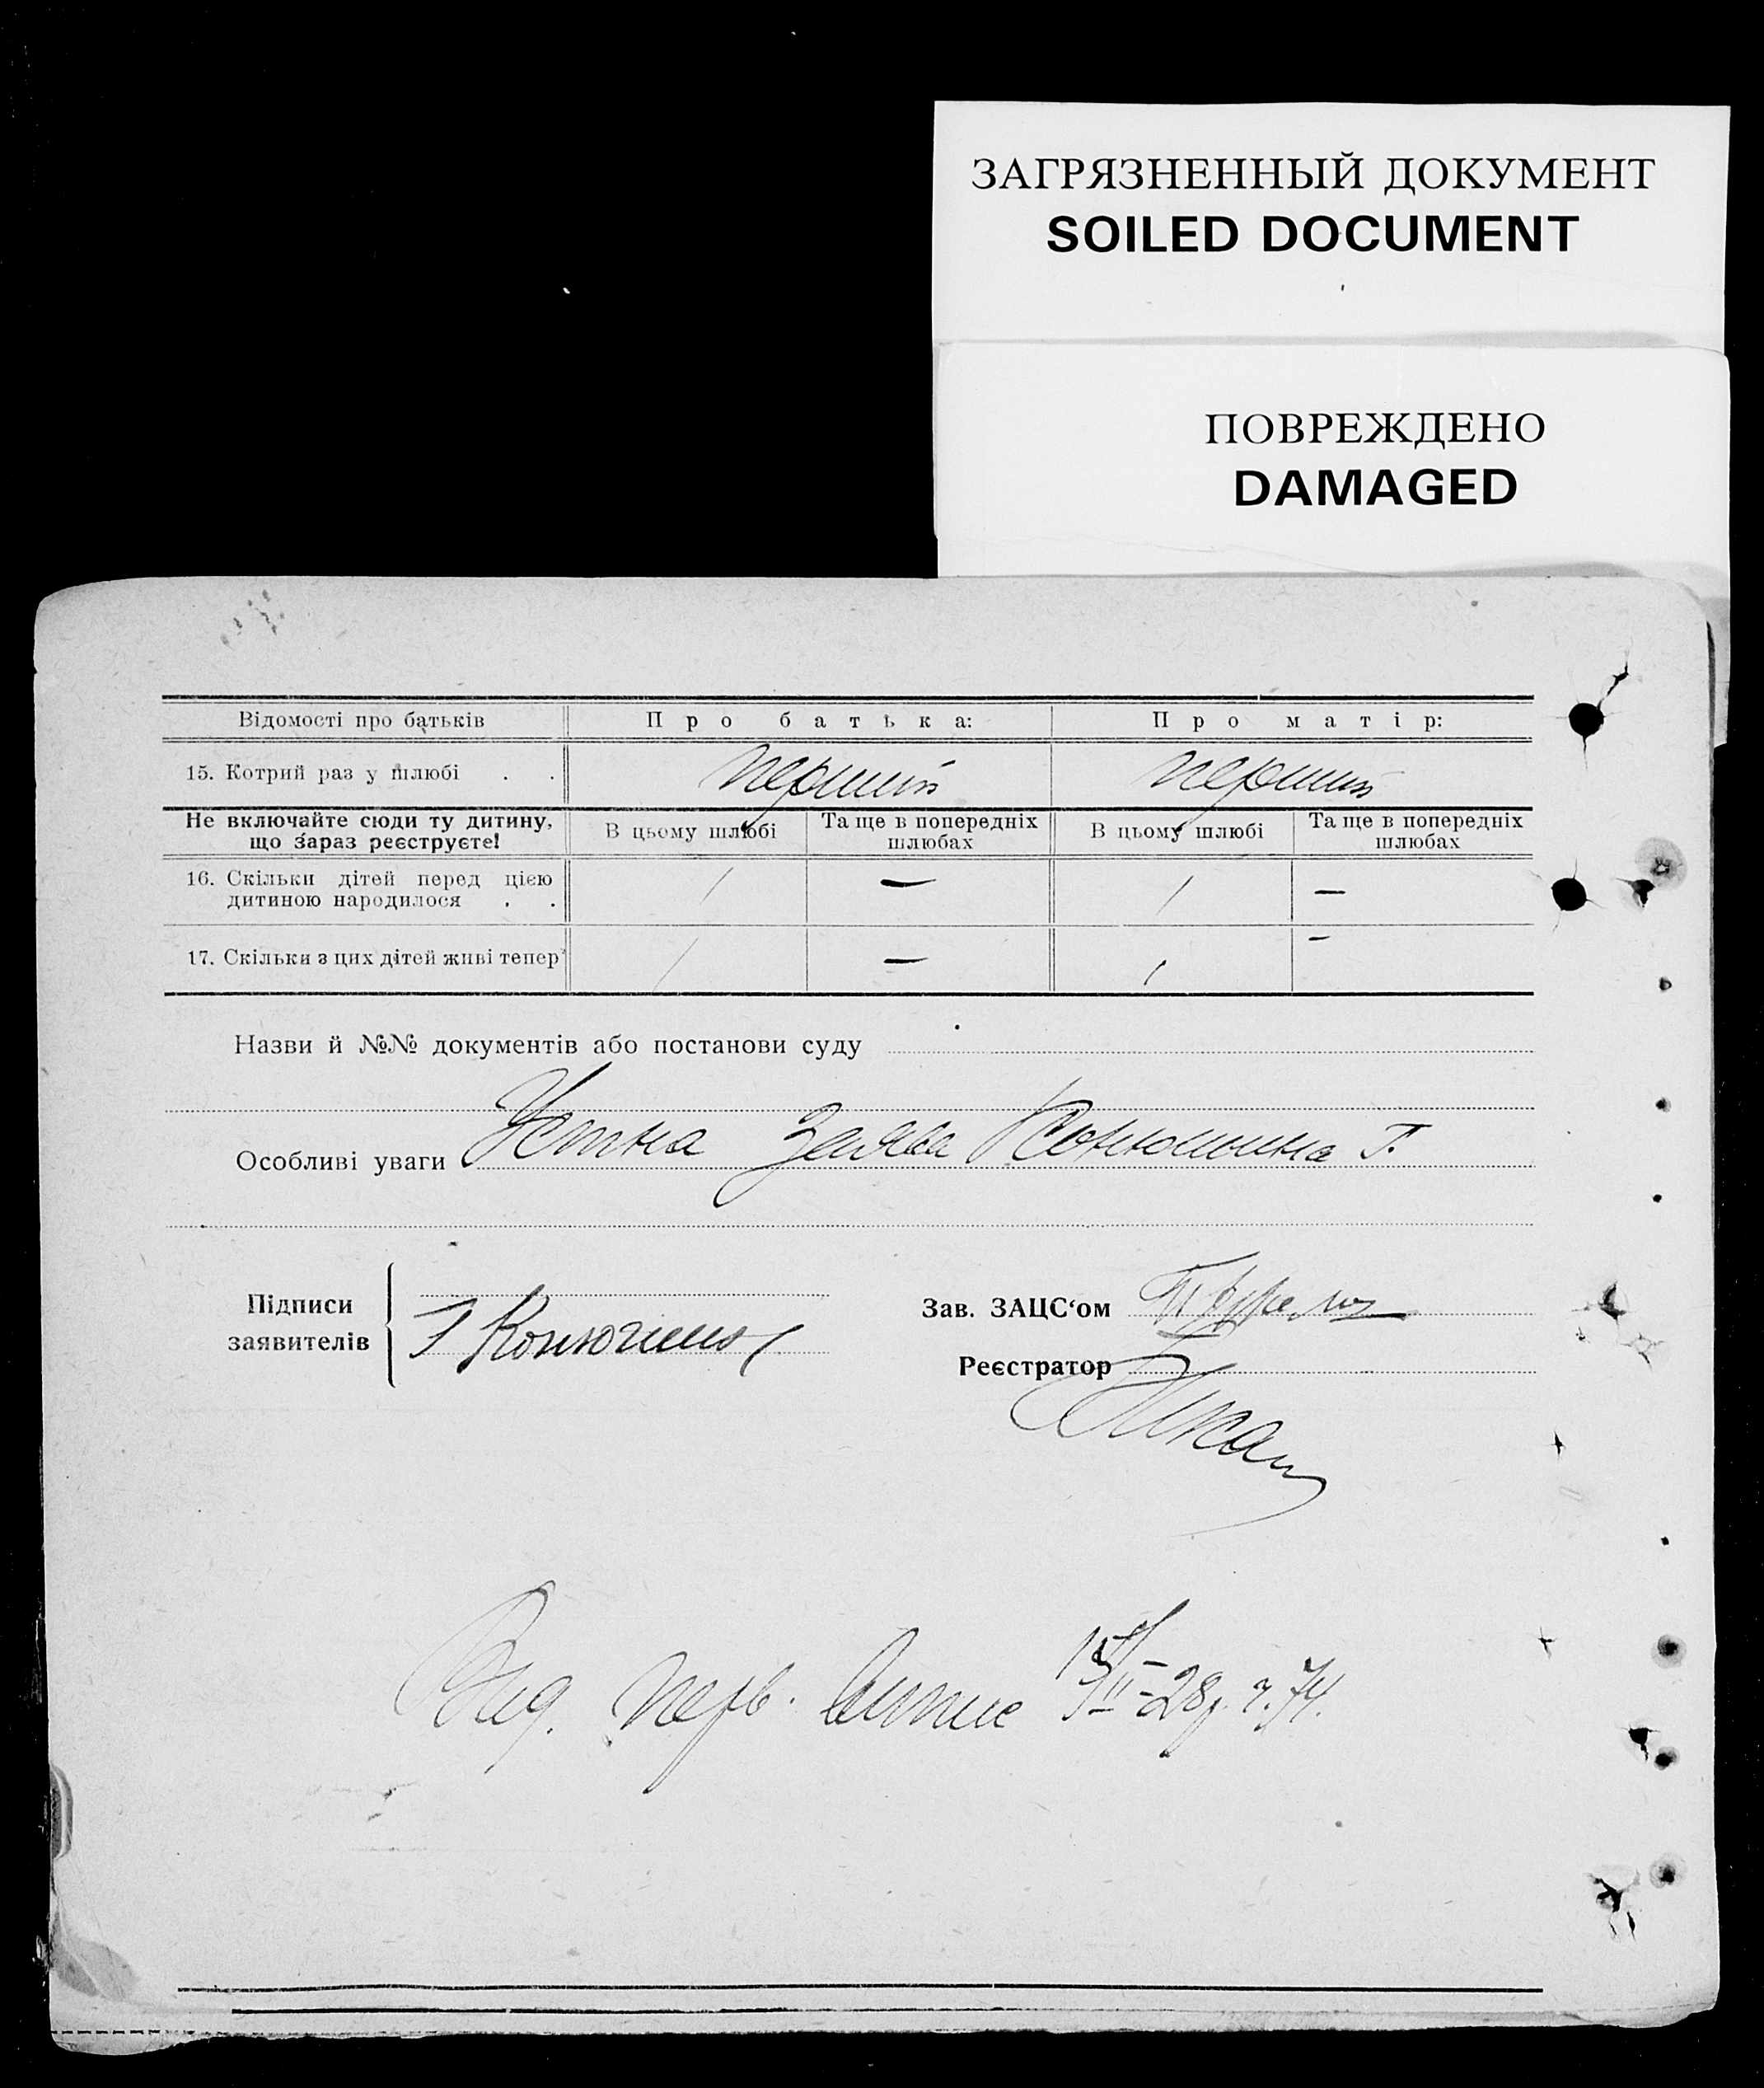 ЗАГРЯЗНЕННЫЙ ДОКУМЕНТ
SOILED DOCUMENT
ПОВРЕЖДЕНО
DAMAGED
Відомості про батьків Про батька: Про матір:
15. Котрий раз у шлюбі . . перший перший
Не включайте сюди ту дитину, що зараз реєструєте! В цьому шлюбі Та ще в попередніх шлюбах В цьому шлюбі Та ще в попередніх шлюбах
16. Скільки дітей перед цією дитиною народилося . . 1 — 1 —
17. Скільки з цих дітей живі тепер 1 — 1 —
Назви й №№ документів або постанови суду
Особливі уваги Устна заява Конюшина Г.
Підписи заявителів Конюшин
Зав. ЗАЦС‘ом
Реєстратор
Вид. перв. випис 28 74.